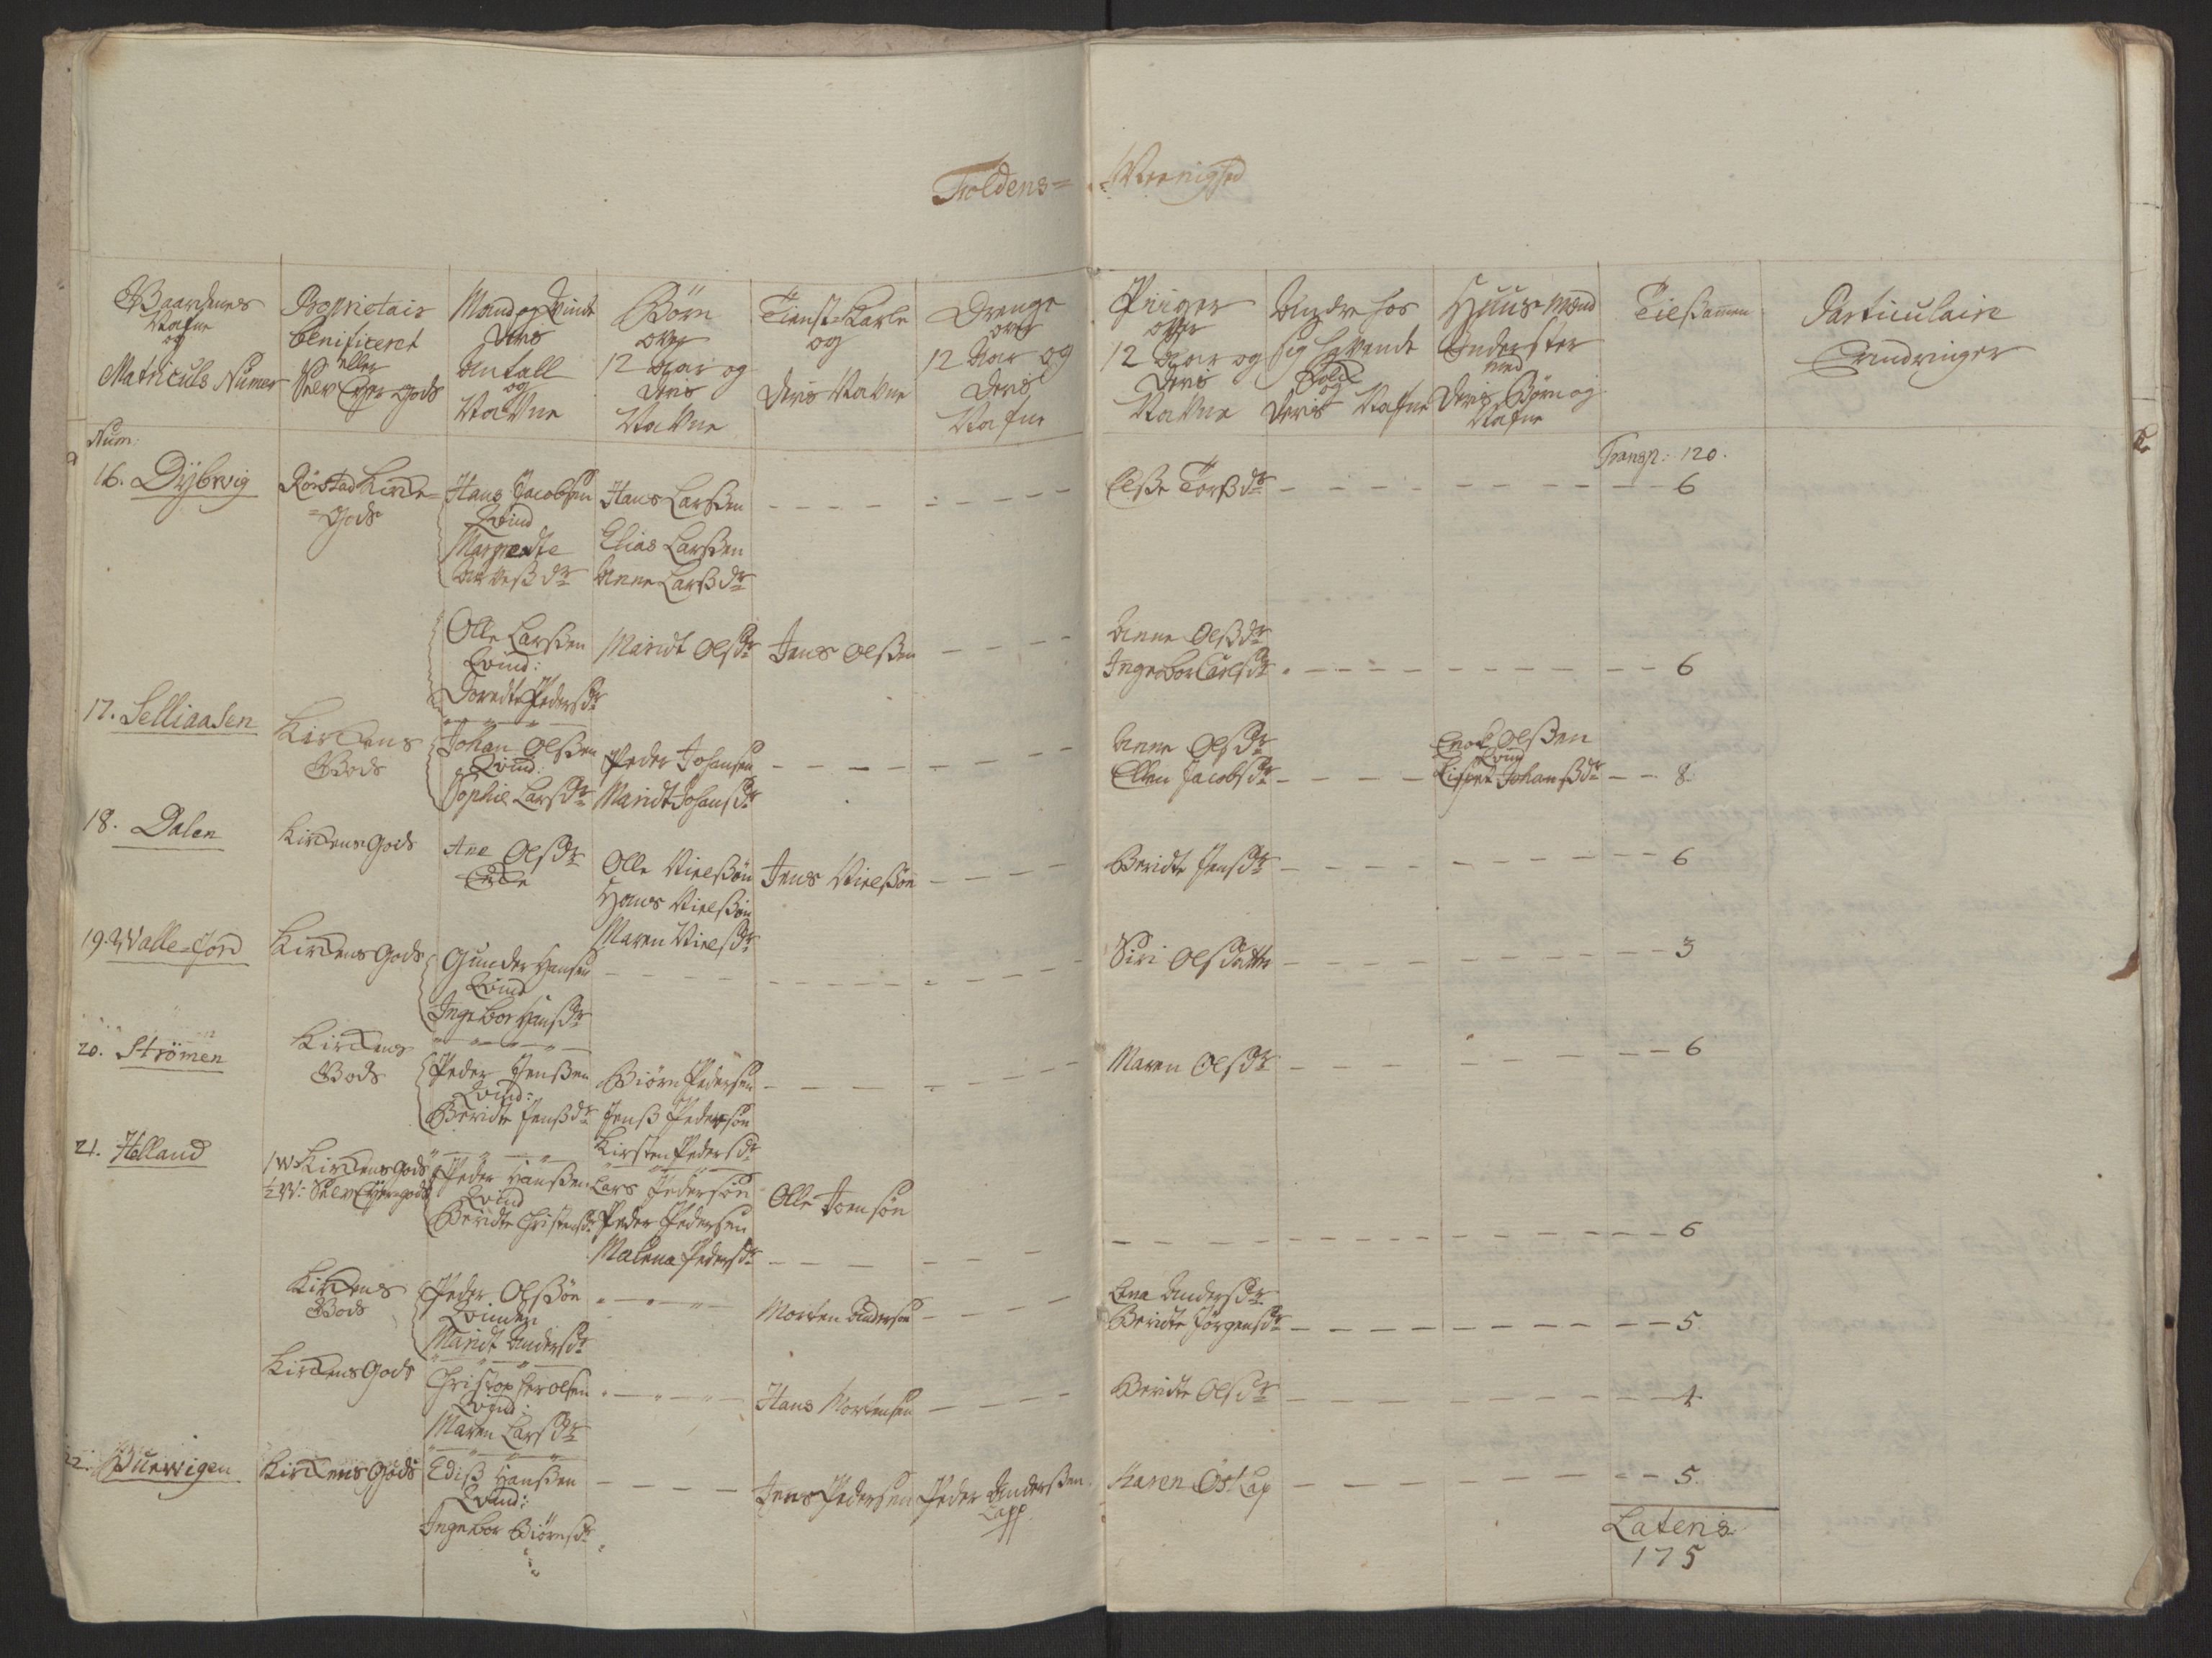 Foldens= Meenighed
Gaardenes
Nafne
og
Matriculs Numer
Proprietair
benificeret
eller
Selv Eyer Gods
Mand og Qvinde
Deris
Antall
og
Navne
Börn
over
12 Aar og
Deris
Navne
Tienste Karle
og
Deris Navne
Drenge
over
12 Aar og
Deris
Nafne
Piiger
over
12 Aar og
Deris
Navne
Andre hos
sig havende
Folck
og
Deris Nafne
Huus-Mænd
Inderster
med
Deris Börn og
Nafne
Tilsammen
Particulaire
Num:
Transp: 120.
16. Dÿbvig
Rörstad Kircke=
=Gods
Hans Jacobsen
Qvind
Margredte
Hans Larsen
Elias Larsen
Anne Larsdr
Else Torsdr
6
Olle Larsen
Qvind:
Doredte Pedersdr
Maridt Olsdr
Jens Olsen
Anne Olsdr
Ingebor Carlsdr
6
17. Selliaasen
Kirckens
Gods
Johan Olsen
Qvind:
Sophie Larsdr
Peder Johansen
Maridt Johansdr
Anne Olsdr
Ellen Jacobsdr
Enok Olsen
Qvind
Lisbet Johansdr
8
18. Dalen
Kirckens Gods
Ane Olsdr
Encke
Olle Nielsön
Hans Nielsön
Maren Nielsdr
Jens Nielsön
Beridte Jensdr
6
19. Walle-Jord
Kirckens Gods
Gunder Hansen
Qvind
Ingebor Hansdr
Siri Olsdatter
3
20. Strömen
Kirckens
Gods
Peder Jensen
Qvind:
Beridte Jensdr
Biörn Pedersen
Jens Pedersön
Kirsten Pedersdr
Maren Olsdr
6
21. Helland
1 W: Kirckens Gods
½ W: Selv Eÿer-gods
Peder Hansen
Qvind
Beridte Christensdr
Lars Pedersön
Peder Pedersen
Malena Pedersdr
Olle Joensön
6
Kirckens
Gods
Peder Olsön
Qvinden
Maridt Andersdr
Morten Andersen
Lena Andersdr
Beridte Jörgensdr
5
Kirckens Gods
Christopher Olsen
Qvind:
Maren Larsdr
Hans Mortensen
Beridte Olsdr
4
22.
Kirckens Gods
Ediss Hansen
Qvind:
Ingebor Biörnsdr
Jens Pedersen
Peder Andersen
Lapp
Karen Ost Lap
5.
Lateris
175